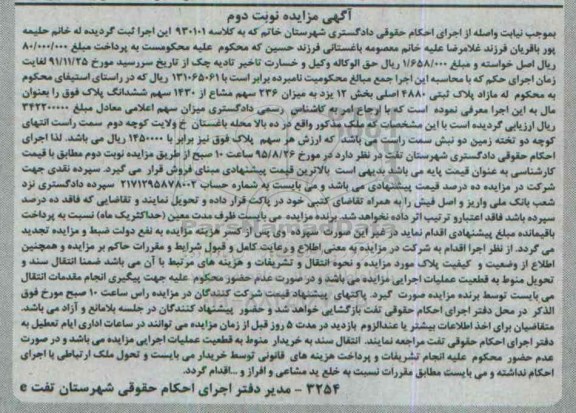 آگهی مزایده نوبت دوم
بموجب نیابت واصله از اجرای احکام حقوقی دادگستری شهرستان خاتم که به کلاسه ۹۳۰۱۰۱ این اجرا ثبت گردیده له خانم حلیمه
پور باقریان فرزند غلامرضا علیه خانم معصومه باغستانی فرزند حسین که محکوم علیه محکومست به پرداخت مبلغ ۸۰/۰۰۰/۰۰۰
ریال اصل خواسته و مبلغ ۱/۶۵۸/۰۰۰ ریال حق الوکاله وکیل و خسارت تاخیر تادیه چک از تاریخ سررسید مورخ ۹۱/۱۱/۲۵ لغایت
زمان اجرای حکم که با محاسبه این اجرا جمع مبالغ محکومیت نامبرده برابر است با ۱۳۱۰۶۵۰۶۱ ریال که در راستای استیفای محکوم
به محکوم له مازاد پلاک ثبتی ۴۸۸۰ اصلی بخش ۱۲ یزد به میزان ۲۳۶ سهم مشاع از ۱۴۳۰ سهم ششدانگ پلاک فوق را بعنوان
مال به این اجرا معرفی نموده است که با ارجاع امر به کاشناس رسمی دادگستری میزان سهم اعلامی معادل مبلغ ۳۴۲۲۰۰۰۰۰
ریال ارزیابی گردیده است با این مشخصات که ملک مذکور واقع در ده بالا محله باغستان خ ولایت کوچه دوم سمت راست انتهای
کوچه دو تخته زمین دو نبش سمت راست می باشد که ارزش هر سهم پلاک فوق نیز برابر با ۱۴۵۰۰۰۰ ریال می باشد. لذا اجرای
احکام حقوقی دادگستری شهرستان تفت در نظر دارد در مورخ ۹۵/۸/۲۶ ساعت ۱۰ صبح از طریق مزایده نوبت دوم مطابق با قیمت
کارشناسی به عنوان قیمت پایه می باشد بدیهی است بالاترین قیمت پیشنهادی مبنای فروش قرار می گیرد. سپرده نقدی جهت
شرکت در مزایده ده درصد قیمت پیشنهادی می باشد و می بایست به شماره حساب ۲۱۷۱۲۹۵۸۷۸۰۰۲ سپرده دادگستری نزد
شعب بانک ملی واریز و اصل فیش را به همراه تقاضای کتبی خود در پاکت قرار داده و تحویل نمایند و تقاضایی که فاقد ده درصد
سپرده باشد فاقد اعتبار و ترتیب اثر داده نخواهد شد برنده مزایده می بایست ظرف مدت معین (حداکثر یک ماه) نسبت به پرداخت
باقیمانده مبلغ پیشنهادی اقدام نماید در غیر این صورت سپرده وی پس از کسر هزینه مزایده به نفع دولت ضبط و مزایده تجدید
می گردد. از نظر اجرا اقدام به شرکت در مزایده به معنی اطلاع و رعایت کامل و قبول شرایط و مقررات حاکم بر مزایده و همچنین
اطلاع از وضعیت و کیفیت پلاک مورد مزایده و نحوه انتقال و تشریفات و هزینه های مرتبط با آن می باشد ضمنا انتقال سند و
تحویل منوط به قطعیت عملیات اجرایی مزایده می باشد و در صورت عدم حضور محکوم علیه جهت پیگیری انجام مقدمات انتقال
می بایست توسط برنده مزایده صورت گیرد. پاکتهای پیشنهاد قیمت شرکت کنندگان در مزایده راس ساعت ۱۰ صبح مورخ فوق
الذکر در محل دفتر اجرای احکام حقوقی تفت بازگشایی خواهد شد و حضور پیشنهاد کنندگان در جلسه بلامانع و آزاد می باشد.
متقاضیان برای اخذ اطلاعات بیشتر یا عندالزوم بازدید در مدت ۵ روز قبل از زمان مزایده می توانند در ساعات اداری ایام تعطیل به
دفتر اجرای احکام حقوقی تفت مراجعه نمایند. انتقال سند به خریدار منوط به قطعیت عملیات اجرایی مزایده می باشد و در صورت
عدم حضور محکوم علیه انجام تشریفات و پرداخت هزینه های قانونی توسط خریدار می بایست و تحول ملک ارتباطی با اجرای
احکام نداشته و می بایست مطابق مقررات نسبت به خلع ید مشاعی و افراز و ...اقدام گردد.
۳۲۵۴ - مدیر دفتر اجرای احکام حقوقی شهرستان تفت e